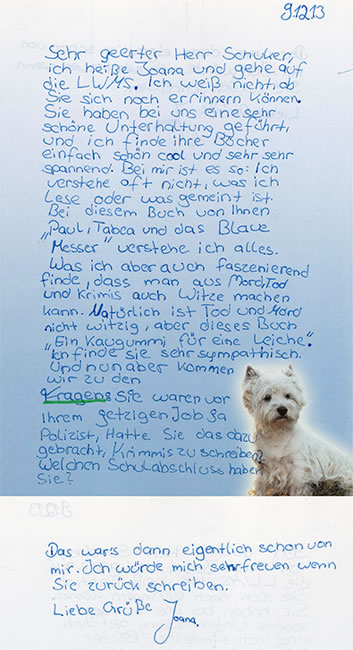 9.12.13
Sehr geerter Herr Schuker,
ich heiße Joana und gehe auf
die LWMS. Ich weiß nicht, ob
Sie sich noch errinnern können.
Sie haben bei uns eine sehr
schöne Unterhaltung geführt,
und ich finde ihre Böcher
einfach schön cool und sehr sehr
spannend. Bei mir ist es so: Ich
verstehe oft nicht, was ich
Lese oder was gemeint ist.
Bei diesem Buch von Ihnen
„Paul, Tabea und das Blaue
Messer" verstehe ich alles.
Was ich aber auch faszenierend
finde, dass man aus Mord, Tod
und Krimis auch Witze machen
kann. Natürlich ist Tod und Mord
nicht witzig, aber dieses Buch
„Ein Kaugummi für eine Leiche".
Ich finde Sie sehr sympathisch.
Und nun aber kommen
wir zu den
Fragen: Sie waren vor
Ihrem jetzigen Job ja
Polizist, Hatte Sie das dazu
gebracht, Krimmis zu schreiben?
Welchen Schulabschluss haben
Sie?
Das war's dann eigentlich schon von
mir. Ich würde mich sehr freuen wenn
Sie zurück schreiben.
Liebe Grüße Joana.